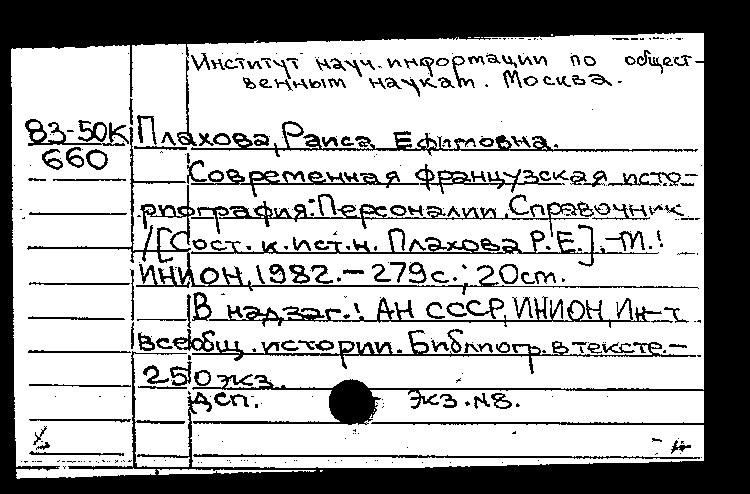 Институт науч. информации по общест-
венным наукам. Москва.
83-50К Плахова, Раиса Ефимовна.
660
Современная французская исто-
риография: Персоналии. Справочник
/[Сост. к.ист.н. Плахова Р.Е.].-М.:
ИНИОН, 1982.-279с.; 20см.
В надзаг.: АН СССР, ИНИОН, Ин-т
всеобщ. истории. Библиогр. в тексте.-
250 экз.
ДСП. Экз.N8.